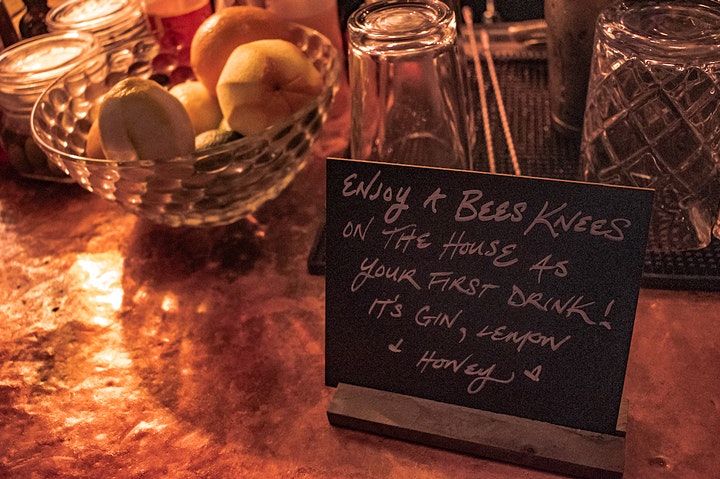 ENJOY A BEES KNEES
ON THE HOUSE AS
YOUR FIRST DRINK!
IT'S GIN, LEMON
& HONEY